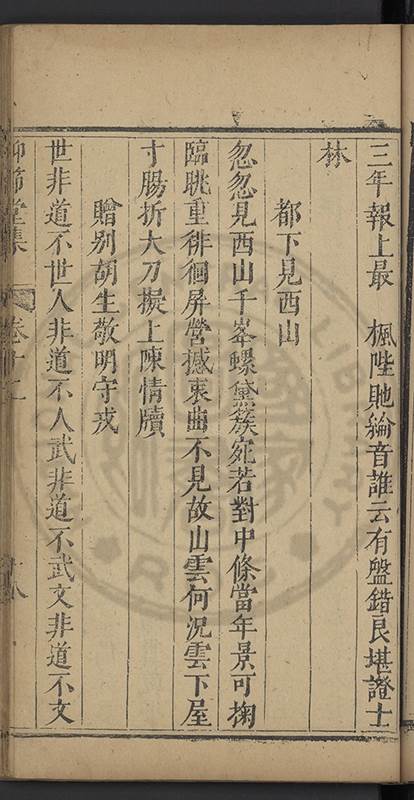 三年報上最　楓陛貤綸音誰云有盤錯良堪證士
林
都下見西山
忽忽見西山千峯螺黛簇宛若對中條當年景可掬
臨眺重徘徊屏營撼衷曲不見故山雲何況雲下屋
寸腸折大刀擬上陳情牘
贈別胡生敬明守戎
世非道不世人非道不人武非道不武文非道不文
仰節堂集　卷十二　十八